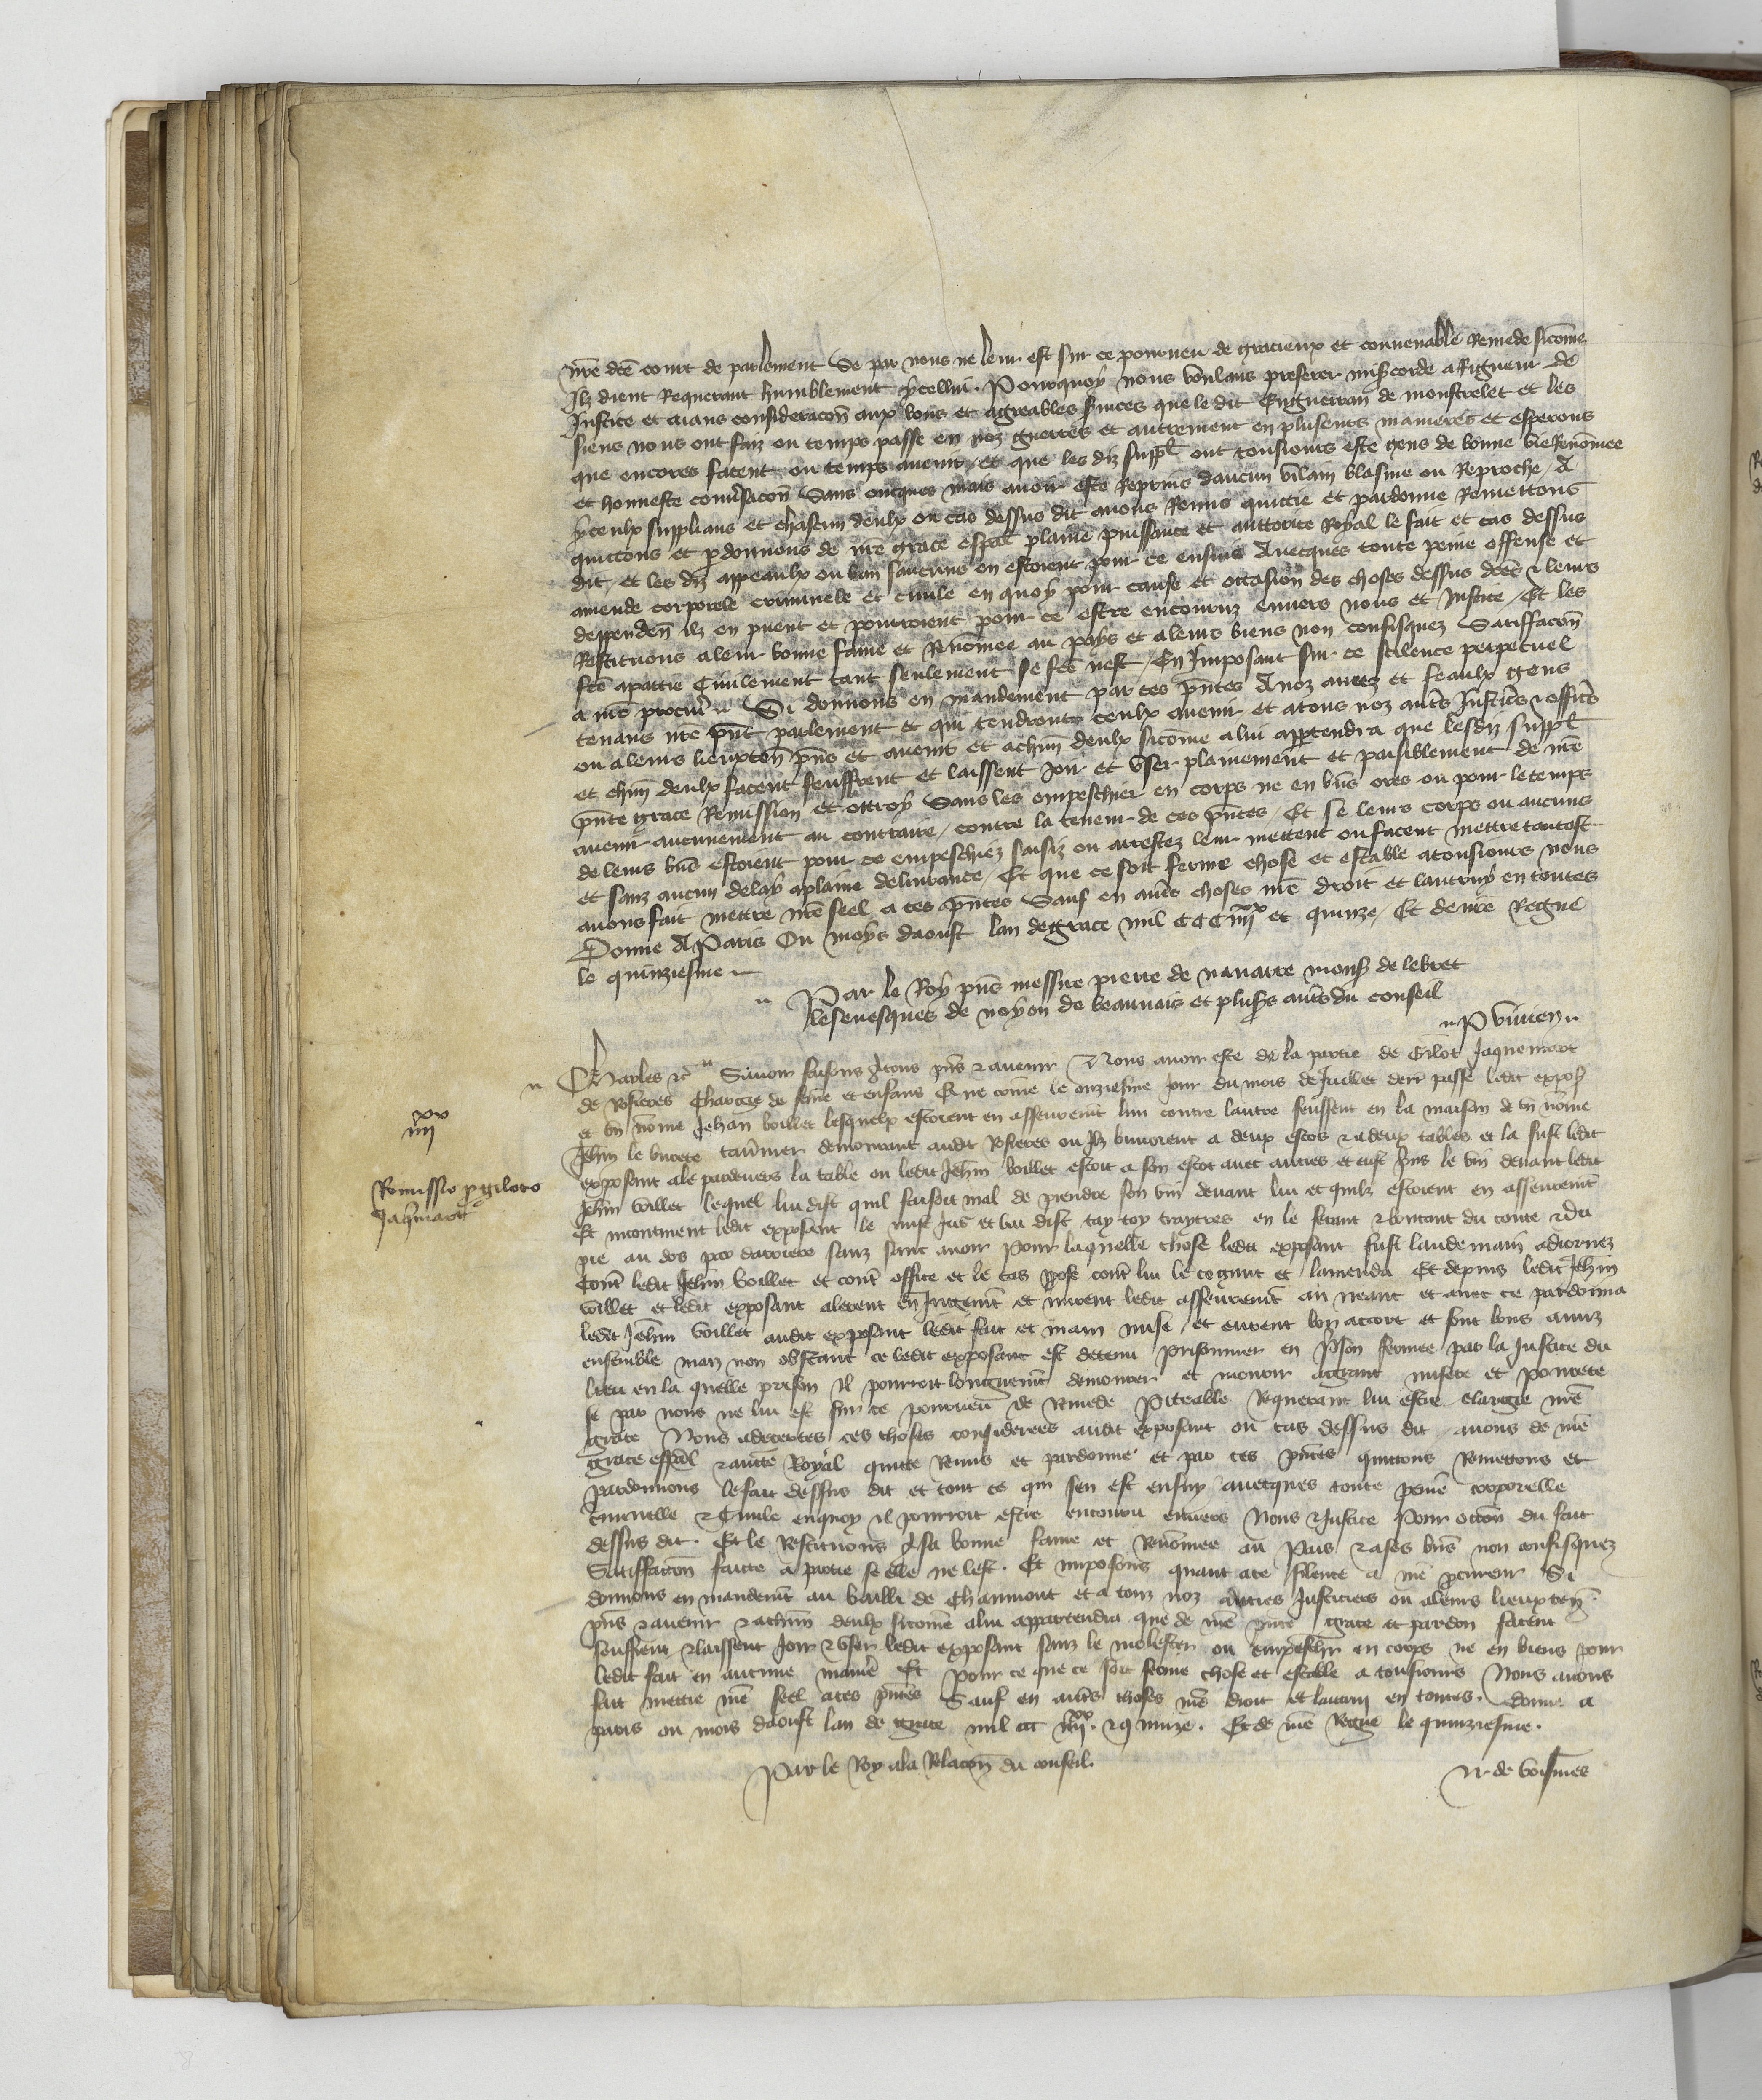 nre dce court de parlement Se par nous ne leur est sur ce pourveu de gracieux et convenable Remede sicome
Ilz dient Requerant humblement ycellui. Pourquoy nous voulans preferer misicorde a Rigueur de
Justice et aians consideracon aux bons et agreables svices que le dit Enguerran de monstrelet et les
siens nous ont faiz ou temps passe en noz guerres et autrement en pluseurs manieres et esperons
que encores facent ou temps avenir / et que les diz suppl ont tousiours este gens de bonne vie Renomee
et honneste convsacon Sans oncques mais avoir este Reprins daucun vilain blasme ou Reproche / A
yceulx supplians et chascun deulx ou cas dessus dit avons Remis quictie et pardonne Remettons
quictons et pdonnons de nre grace espal plaine puissance et auctorite Royal le fait et cas dessus
dit / et les diz appeaulx ou ban saucuns en estoient pour ce ensuis Avecques toute peine offense et
amende corporele criminele et civile en quoy pour cause et occasion des choses dessus dces & leurs
deppenden ilz en puent et pourroient pour ce estre encouruz envers nous et Justice / Et les
Restituons a leur bonne fame et Renomee au pays et a leurs biens non confisquez Satiffacon
fce a partie Civilement tant seulement se fce nest / En Imposant sur ce scilence perpetuel
a nre procur Si donnons en mandement par ces pntes A noz amez et feaulx gens
tenans nre pnt parlement et qui tendront ceulx avenir et a tous noz aus Justics & offics
ou a leurs lieuxten pns et avenir et a chun deulx sicome a lui appartendra que lesdiz suppl
et chun deulx facent seuffrent et laissent Joir et User plainement et paisiblement de nre
pnte grace Remission et ottroy Sans les empeschier en corps ne en bns ores ou pour le temps
avenir aucunement au contraire / contre la teneur de ces pntes / Et se leurs corps ou aucuns
de leurs bns estoient pour ce empeschiez saisiz ou arrestez leur mettent ou facent mettre tantost
et sanz aucun delay a plaine delivrance / Et que ce soit ferme chose et estable a tousiours nous
avons fait mettre nre seel a ces pntes Sauf en aus choses nre droit et lautruy en toutes
Donne A Paris Ou moys daoust lan de grace mil CCC iiii xx et quinze / Et de nre Regne
le quinziesme
Par le Roy pns messire pierre de navarre mons de lebret
lesevesques de noyon de beauvais et plus aus du conseil
P viwien
Charles &c Savoir faisons A tous pns & avenir A Nous avoir este de la partie de Gilot Jaquemart
de Rosieres Chargie de feme et enfans Que come le onziesme Jour du mois de Juillet derr passe ledit expos
et un nome Jehan voillet lesquelx estoient en asseurement lun contre lautre feussent en la maison de un nome
Jehan le buvete tavnier demourant audit Rosieres ou Ilz buvoient a deux escos & a deux tables et la fust ledit
exposant ale pardevers la table ou ledit Jehan voillet estoit a son escot avec autres et eust pris le vin devant ledit
Jehan voillet lequel lui dist quil faisoit mal de prendre son vin devant lui et quilz estoient en asseurement
Et incontinent ledit exposant le mist Jus et lui dist tay toy traytres en le ferant & boutant du coute & du
pie au dos par darriere sanz sanc avoir Pour laquelle chose ledit exposant fust landemain adiornez
Contre ledit Jehan voillet et contre office et le cas ppose contre lui le cognut et lamenda Et depuis ledit Jehan
voillet et ledit exposant alerent en Jugement et mirent ledit asseurement au neant et avec ce pardonna
ledit Jehan voillet audit exposant ledit fait et main mise / et eurent bon accort et sont bons amiz
ensemble maiz non obstant ce ledit exposant est detenu prisonnier en pson fermee par la Justice du
lieu en la quelle prison il pourroit longuement demourer et mourir a grant misere et povrete
se par nous ne lui est sur ce pourveu de Remede Piteable Requerant lui estre elargie nre
grace Nous adecertes ces choses considerees audit exposant ou cas dessus dit avons de nre
grace espal & aucte Royal quitte Remis et pardonne et par ces pntes quittons Remettons et
pardonnons le fait dessus dit et tout ce qui sen est ensuy avecques toute peine corporelle
Criminelle & Civile enquoy il pourroit estre encouru envers Nous & Justice Pour occon du fait
dessus dit. Et le Restituons A sa bonne fame et Renomee au Pais & a ses bns non confisquez
Satiffaction faicte a partie se elle ne lest. Et imposons quant a ce silence a nre pcureur Si
donnons en mandement au bailli de Chaumont et a touz noz autres Justiciers ou a leurs lieuxten
pns & avenir & a chun deulx sicome a lui appartendra que de nre pnte grace et pardon facent
seuffrent & laissent Joir & User ledit exposant sanz le molester ou empeschier en corps ne en biens pour
ledit fait en aucune maniere Et Pour ce que ce soit ferme chose et estable a tousiours Nous avons
fait mettre nre seel a ces pntes Sauf en aus choses nre droit et lautruy en toutes. Donne a
paris ou mois daoust lan de grace mil ccc iiii xx. & quinze. Et de nre Regne le quinziesme.
Par le Roy a la Relacon du conseil.
N. de voisines
xx
iiii
Remissio p giloto
Jaqmart